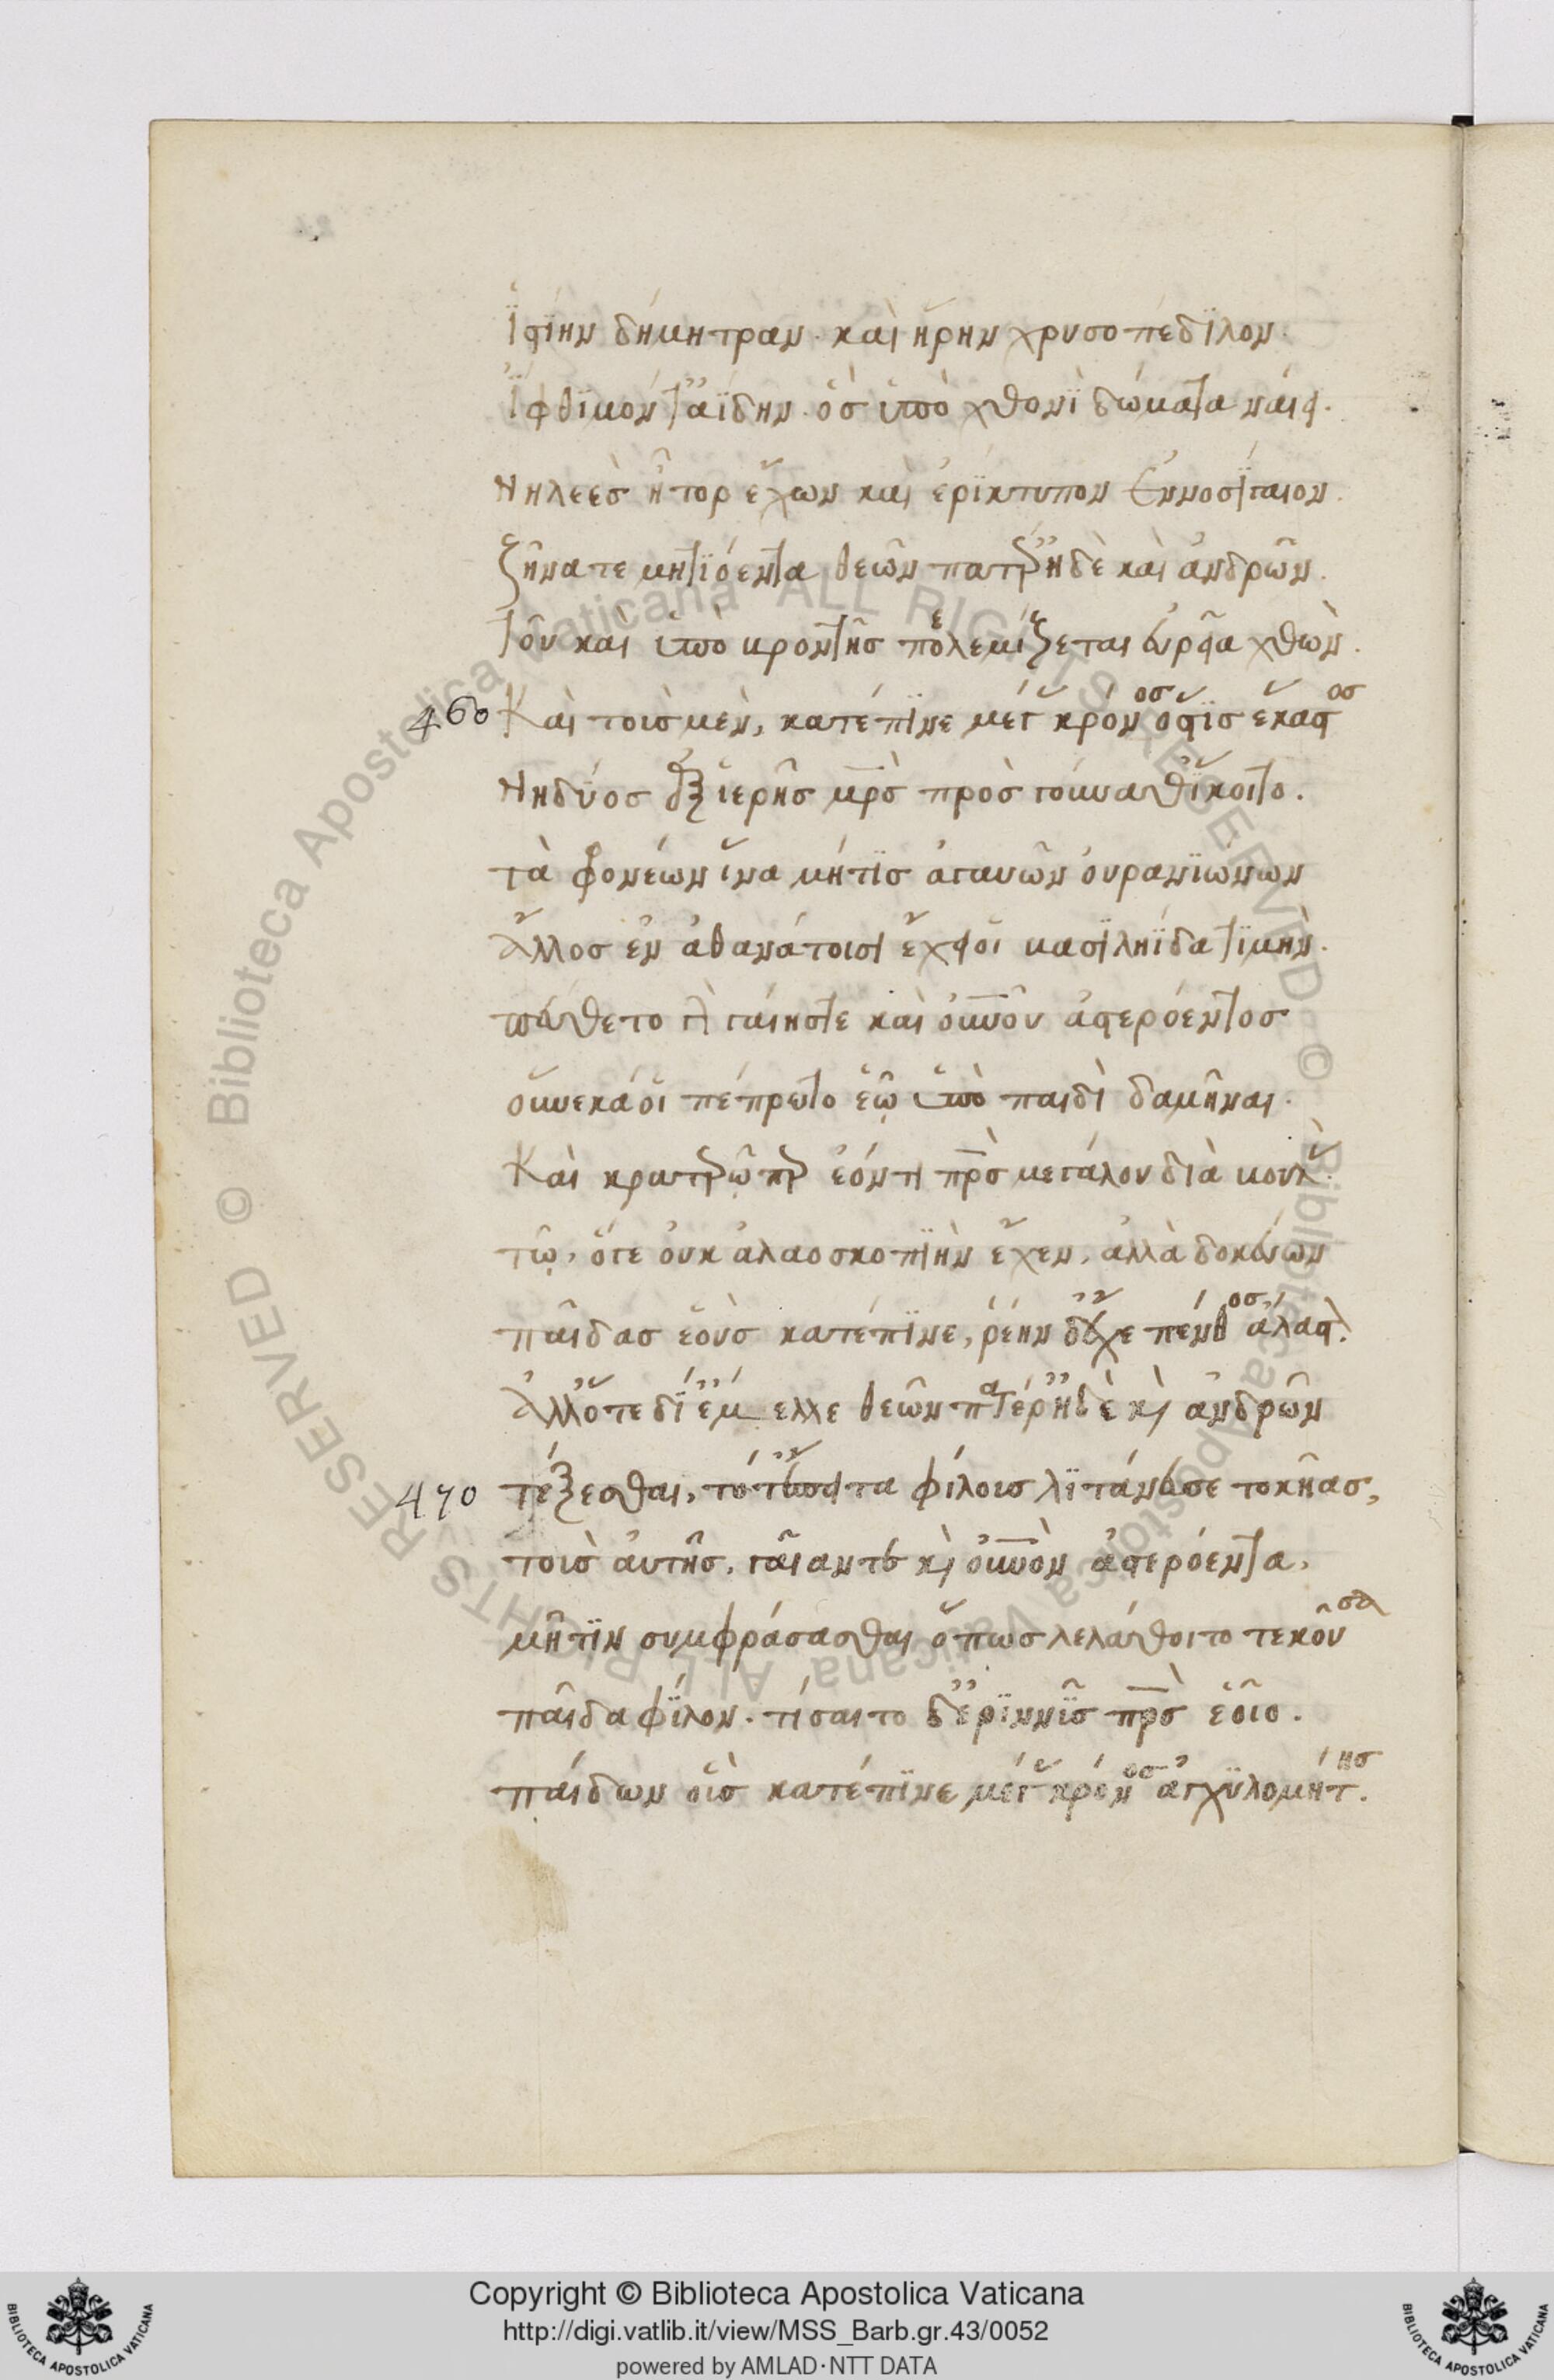 ἱστίην δήμητραν· καὶ ἥρην χρυσοπέδϊλον·
ἴφθϊμόντ' ἀΐδην· ὃσ ὑπὸ χθονὶ δώματα ναίει·
Νηλεὲσ ἦτορ ἔχων καὶ ἐρίκτυπον ἐννοσίγαιον·
ζῆνα τε μητϊόεντα θεῶν πατέρ' ἠδὲ καὶ ἀνδρῶν.
τοῦ καὶ ὑπὸ βροντῆσ πελεμίζεται εὐρεῖα χθὼν.
460 Καὶ τοὺσ μὲν, κατέπϊνε μέγασ κρόνοσ ὅστϊσ ἕκαστοσ
Νηδύοσ ἐξ ἱερῆσ μρὸσ πρὸσ γούναθ' ἵκοιτο.
τὰ φρονέων ἵνα μήτϊσ ἀγαυῶν οὐρανϊώνων
Ἄλλοσ ἐν ἀθανάτοισι ἔχει βασιληΐδα τϊμὴν.
πεύθετο γὰρ γαίησ τε καὶ οὐνοῦ ἀστερόεντοσ
οὕνεκά οἱ πέπρωτο ἑῷ ὑπὸ παιδὶ δαμῆναι.
Καὶ κρατερῷ περ ἐόντι πρὸσ μεγάλου διὰ βουλὰσ.
τῷ, ὅγε οὐκ ἀλαοσκοπϊὴν ἔχεν, ἀλλὰ δοκεύων
παῖδασ ἑοὺσ κατέπϊνε, ῥέην δ' ἔχε πένθοσ ἄλαστον.
Ἀλλ' ὅτε δί' ἔμελλε θεῶν πατέρ' ἠδὲ κὶ ἀνδρῶν
470 τέξεσθαι, τότ' ἔπειτα φίλουσ λϊτάνευσε τοκῆασ,
τοὺσ αὐτῆσ, γαῖαν τε κὶ οὐνὸν ἀστερόεντα,
μῆτϊν συμφράσασθαι ὅπωσ λελάθοιτο τεκοῦσα
παῖδα φίλον. τίσαιτο δ' ἐρϊννῦσ πρὸσ ἑοῖο.
παίδων οὓσ κατέπϊνε μέγασ κρόνοσ ἀγχϋλομήτησ.
Copyright © Biblioteca Apostolica Vaticana
http://digi.vatlib.it/view/MSS_Barb.gr.43/0052
powered by AMLAD·NTT DATA